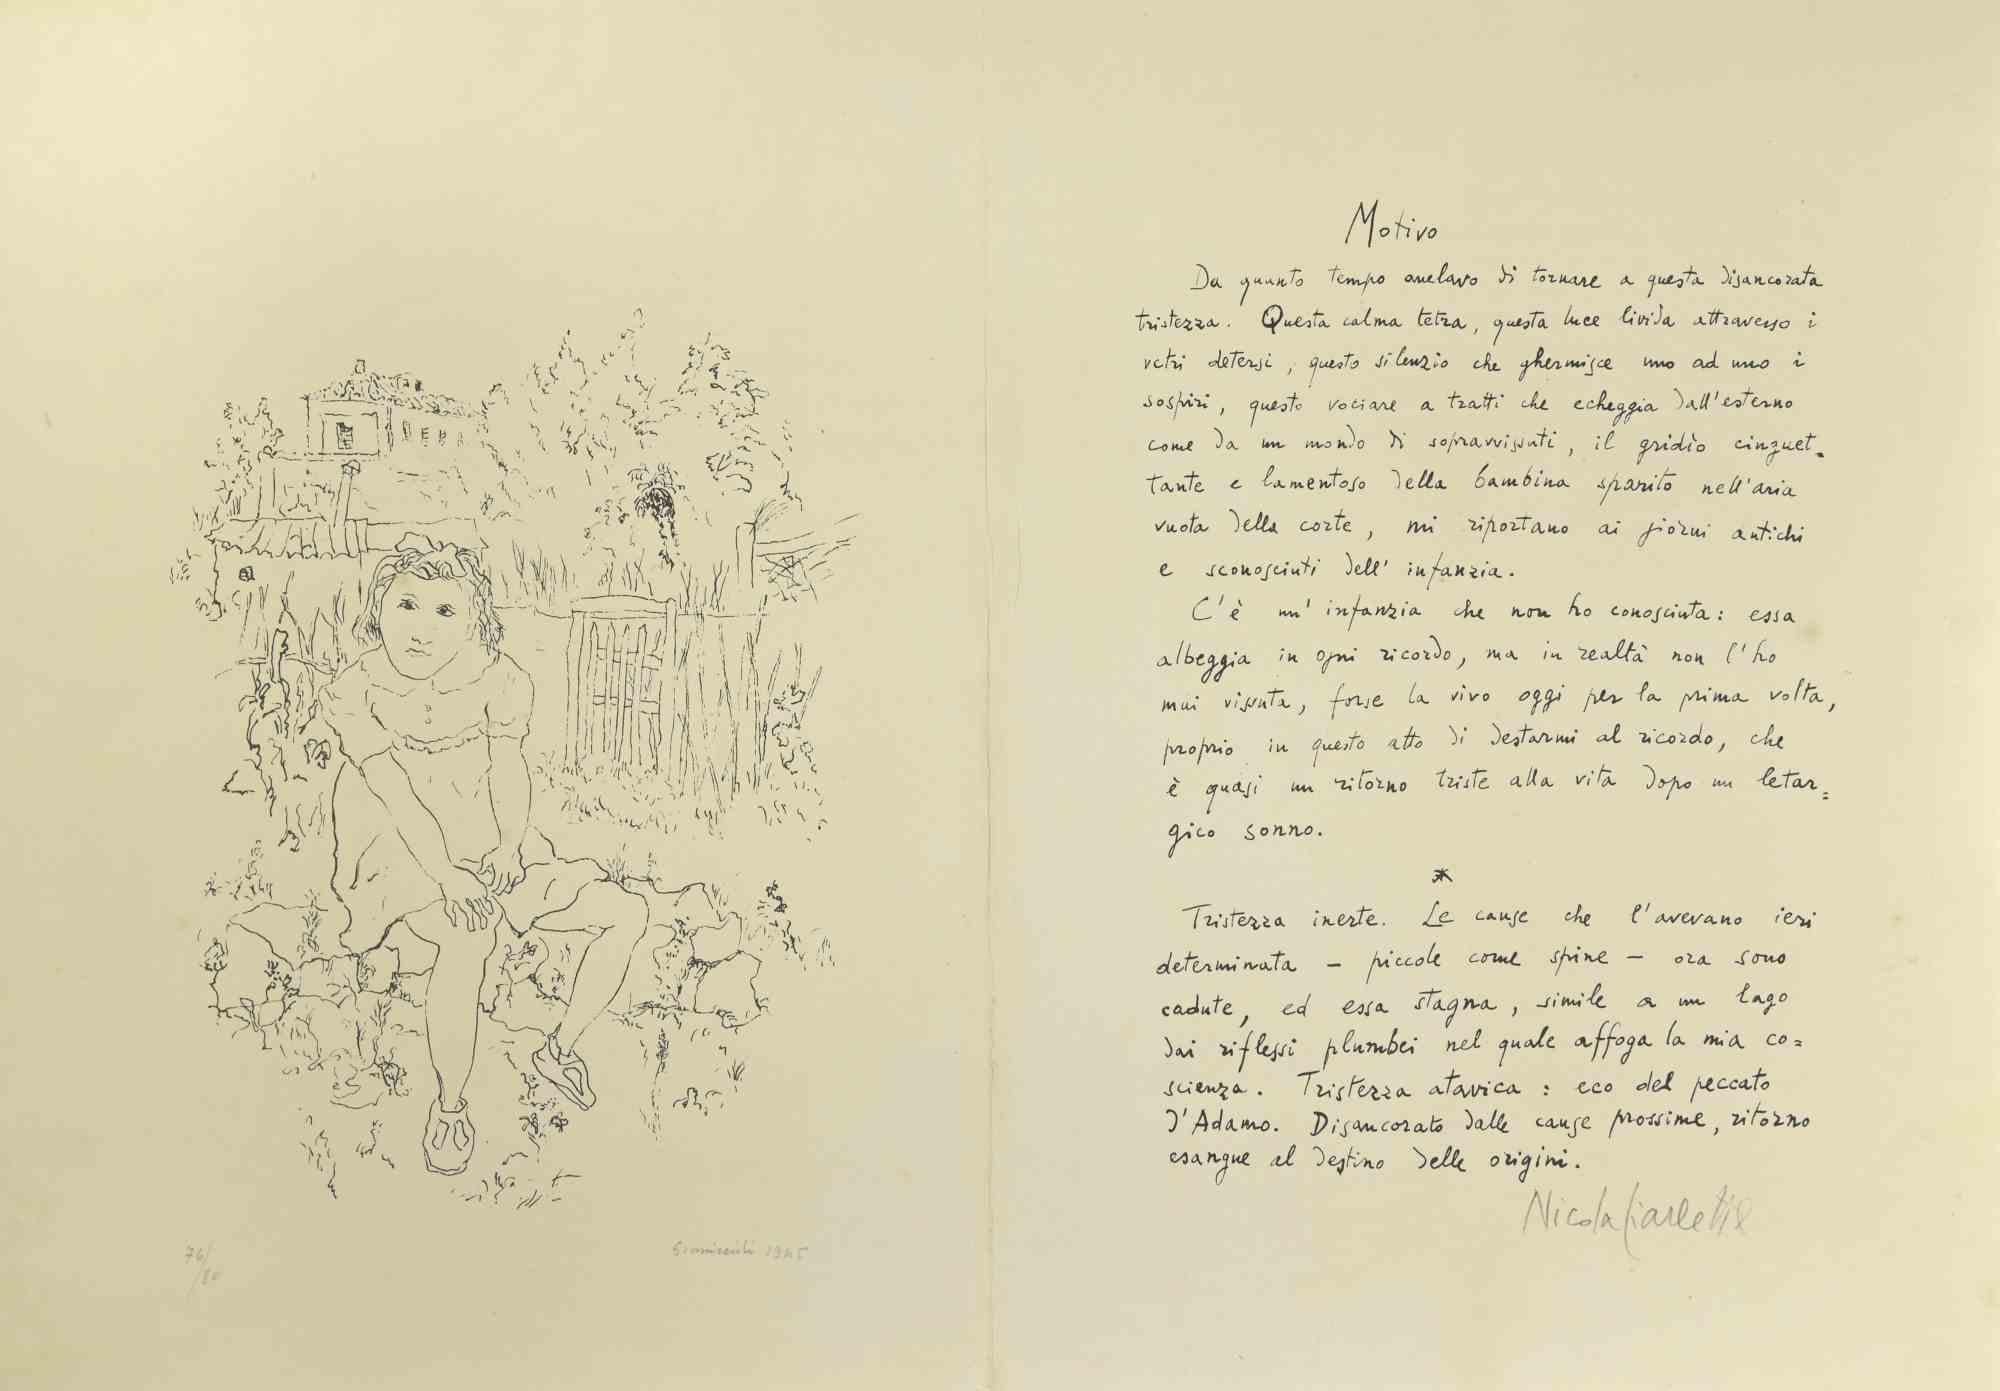 Motivo
Da quanto tempo anelavo di tornare a questa disancorata
tristezza. Questa calma tetra, questa luce livida attraverso i
vetri detersi, questo silenzio che ghermisce uno ad uno i
sospiri, questo vociare a tratti che echeggia dall'esterno
come da un mondo di sopravvissuti, il gridio cinguet=
tante e lamentoso della bambina sparito nell'aria
vuota della corte, mi riportano ai giorni antichi
e sconosciuti dell'infanzia.
C'è un'infanzia che non ho conosciuta: essa
albeggia in ogni ricordo, ma in realtà non l'ho
mai vissuta, forse la vivo oggi per la prima volta,
proprio in questo atto di destarmi al ricordo, che
è quasi un ritorno triste alla vita dopo un letar=
gico sonno.
*
Tristezza inerte. Le cause che l'avevano ieri
determinata – piccole come spine – ora sono
cadute, ed essa stagna, simile a un lago
dai riflessi plumbei nel quale affoga la mia co=
scienza. Tristezza atavica: eco del peccato
d'Adamo. Disancorato dalle cause prossime, ritorno
esangue al destino delle origini.
Nicola Ciarletta
76/80
1945